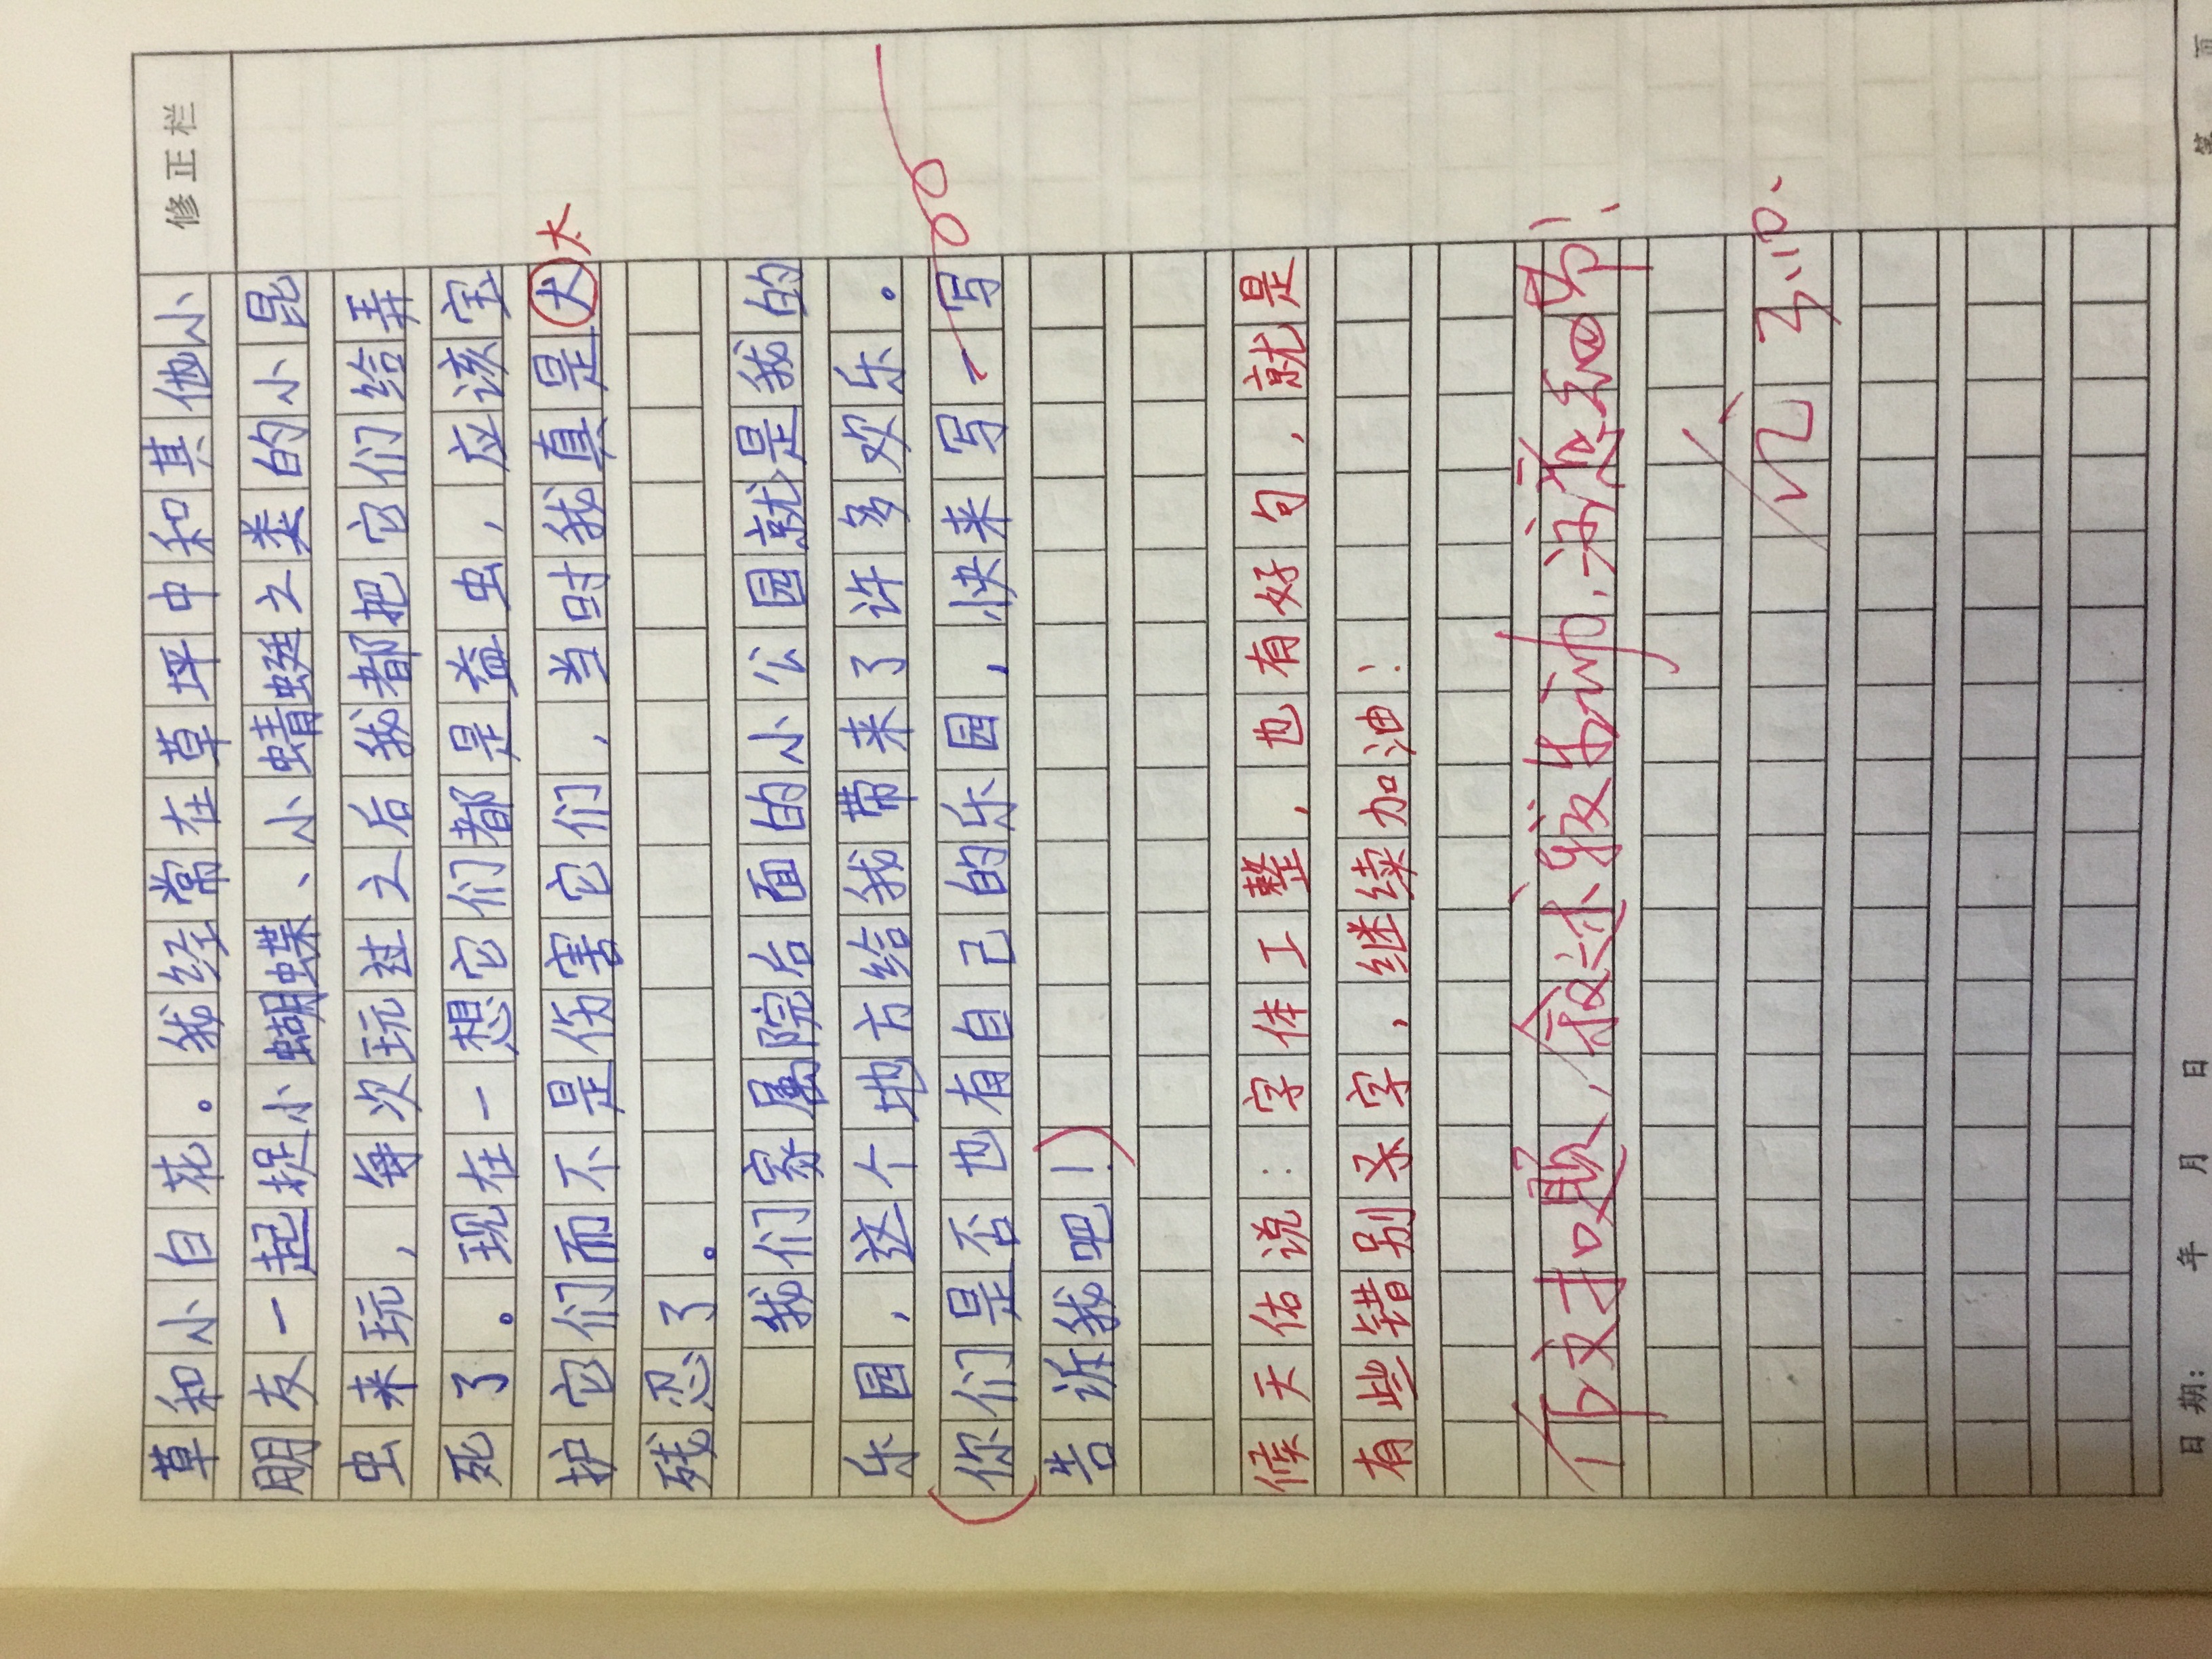 修正栏
草和小白花。我经常在草坪中和其他小
朋友一起捉小蝴蝶、小蜻蜓之类的小昆
虫来玩，每次玩过之后我都把它们给弄
死了。现在一想它们都是益虫，应该宝
护它们而不是伤害它们，当时我真是大太
残忍了。
我们家属院后面的小公园就是我的
乐园，这个地方给我带来了许多欢乐。
你们是否也有自己的乐园，快来写一写
告诉我吧！
候天佑说：字体工整，也有好句，就是
有些错别字，继续加油！
作文扣题，叙述，注意细节！
优
日期: 年 月 日 第 页